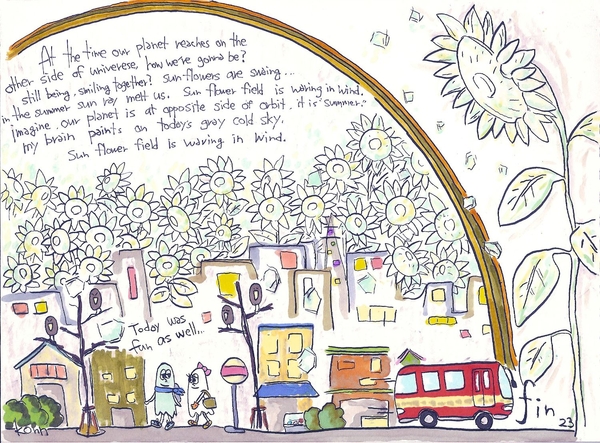 At the time our planet reaches on the
other side of univerese, how we're gonna be?
still being smiling together? Sun-flowers are swing...
in the summer sun ray melt us. Sun flower field is waving in wind.
imagine. our planet is at opposite side of orbit. it is "summer."
my brain paints on today's gray cold sky.
Sun flower field is waving in wind.
Today was
fun as well...
fin
23
KOHH